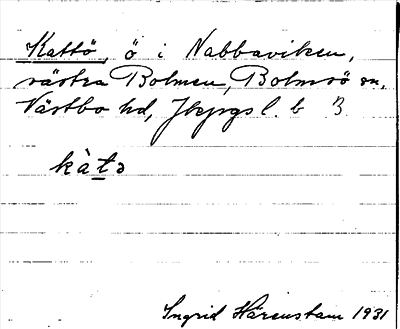 Kattö, ö i Nabbaviken,
västra Bolmen, Bolmsö sn,
Västbo hd, Jkpgs l. b 3
kàtə
Ingrid Härenstam 1931